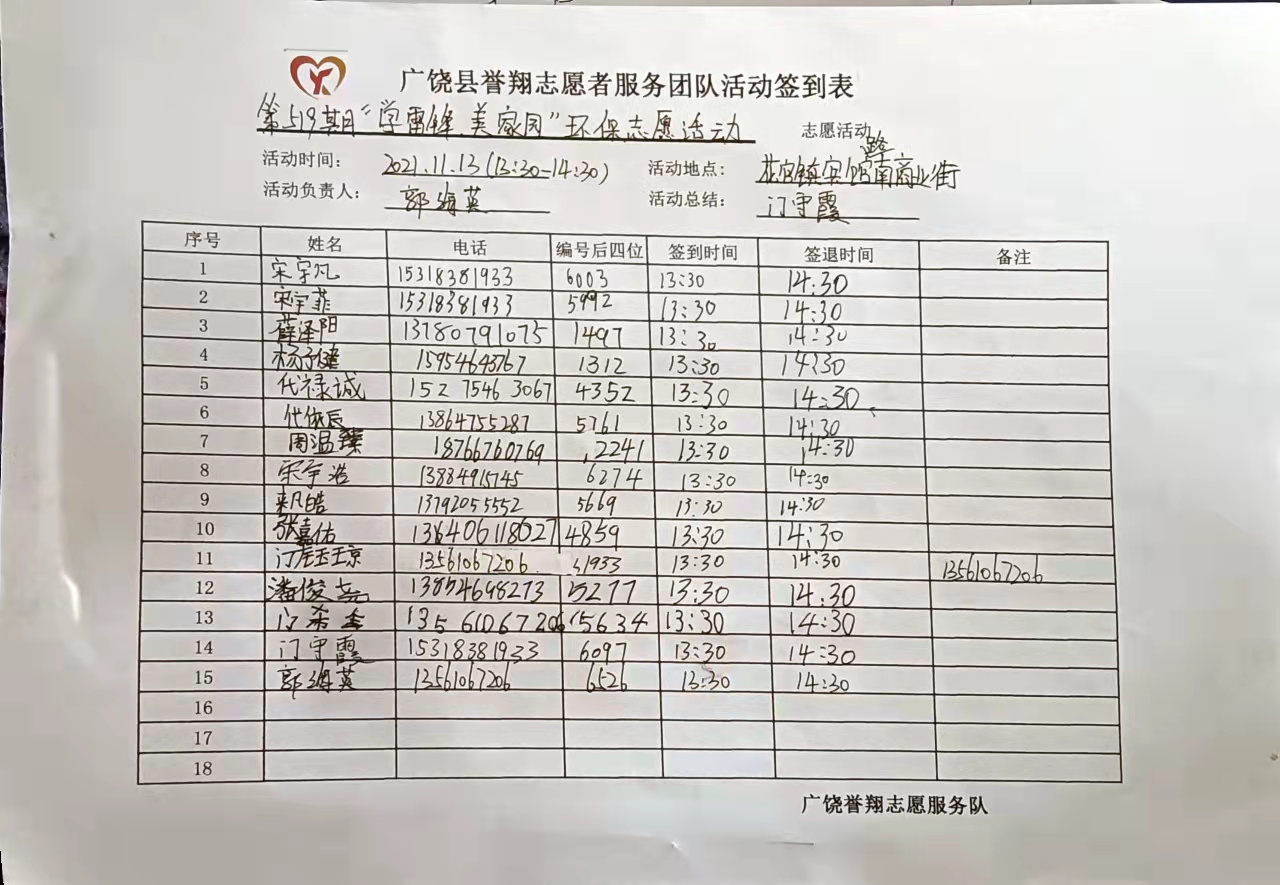 广饶县誉翔志愿者服务团队活动签到表
第519期"学雷锋.美家园"环保志愿活动 志愿活动
活动时间： 2021.11.13(13:30-14:30) 活动地点： 花官镇宾馆路南商业街
活动负责人： 郭海英 活动总结： 门守霞
序号 姓名 电话 编号后四位 签到时间 签退时间 备注
1 宋宇凡 15318381933 6003 13:30 14:30
2 宋宇菲 15318381933 5992 13:30 14:30
3 薛泽阳 13780791075 1497 13:30 14:30
4 杨子健 15954643767 1312 13:30 14:30
5 代禄诚 152 7546 3067 4352 13:30 14:30
6 代依辰 13864755287 5761 13:30 14:30
7 周温臻 18766760769 2241 13:30 14:30
8 宋宇浩 13884915745 6274 13:30 14:30
9 凡皓 13792055552 5669 13:30 14:30
10 张嘉佑 136406118027 4859 13:30 14:30
11 13561067206 1933 13:30 14:30 13561067206
12 潘俊 13854698273 5277 13:30 14:30
13 13561067206 5634 13:30 14:30
14 门守霞 15318381933 6097 13:30 14:30
15 郭海英 13561067206 6526 13:30 14:30
16
17
18
广饶誉翔志愿服务队